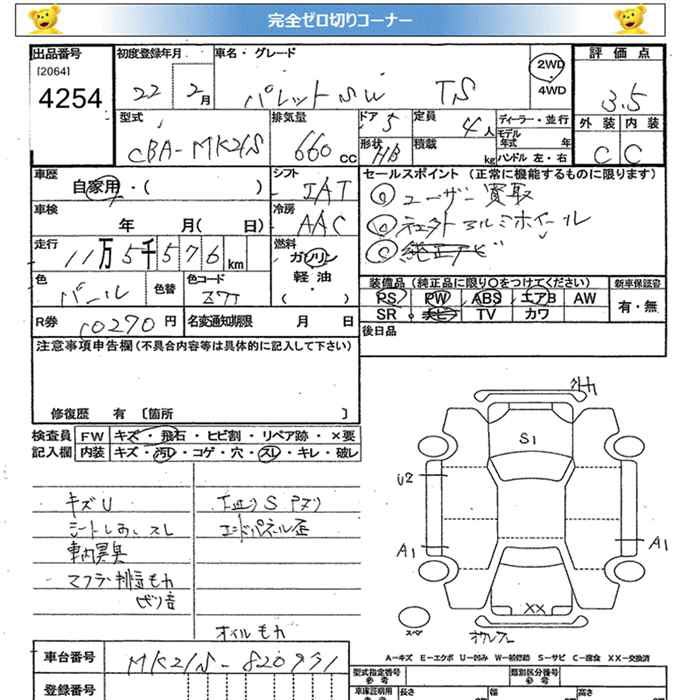 完全ゼロ切りコーナー
出品番号 初度登録年月 車名・グレード 評価点
[2064] 22 2月 パレットSW TS 2WD 4WD 3.5
4254
型式 排気量 ドア 5 定員 4人 ディーラー・並行 外装 内装
CBA-MK21S 660cc 形状 HB 積載 kg モデル年式 年 C C
ハンドル 左・右
車歴 シフト セールスポイント (正常に機能するものに限ります)
自家用・( ) IAT ① ユーザー買取
車検 冷房
年 月( 日) AAC アルミホイール
走行 燃料
11万5千576km ガソリン 純正ナビ
軽油
色 色替 色コード ( ) 装備品 (純正品に限り○をつけてください) 新車保証書
パール Z7T PS PW ABS エアB AW 有・無
SR TV カワ
R券 10270円 名変通知期限 月 日 後日品
注意事項申告欄 (不具合内容等は具体的に記入して下さい)
修復歴 有 [箇所 ]
検査員 FW キズ・飛石・ヒビ割・リペア跡・×要
記入欄 内装 キズ・汚レ・コゲ・穴・スレ・キレ・破レ
S1
U2
A1 A1
XX
キズU
シートしみ、スレ
エンドパネル歪
車内異臭
マフラー排気モレ
オイルモレ
スペア
A－キズ E－エクボ U－凹み W－補修跡 S－サビ C－腐食 XX－交換済
車台番号 MK21S-820931 型式指定番号 類別区分番号
参考 参考
登録番号 車庫証明用 長さ 幅 高さ